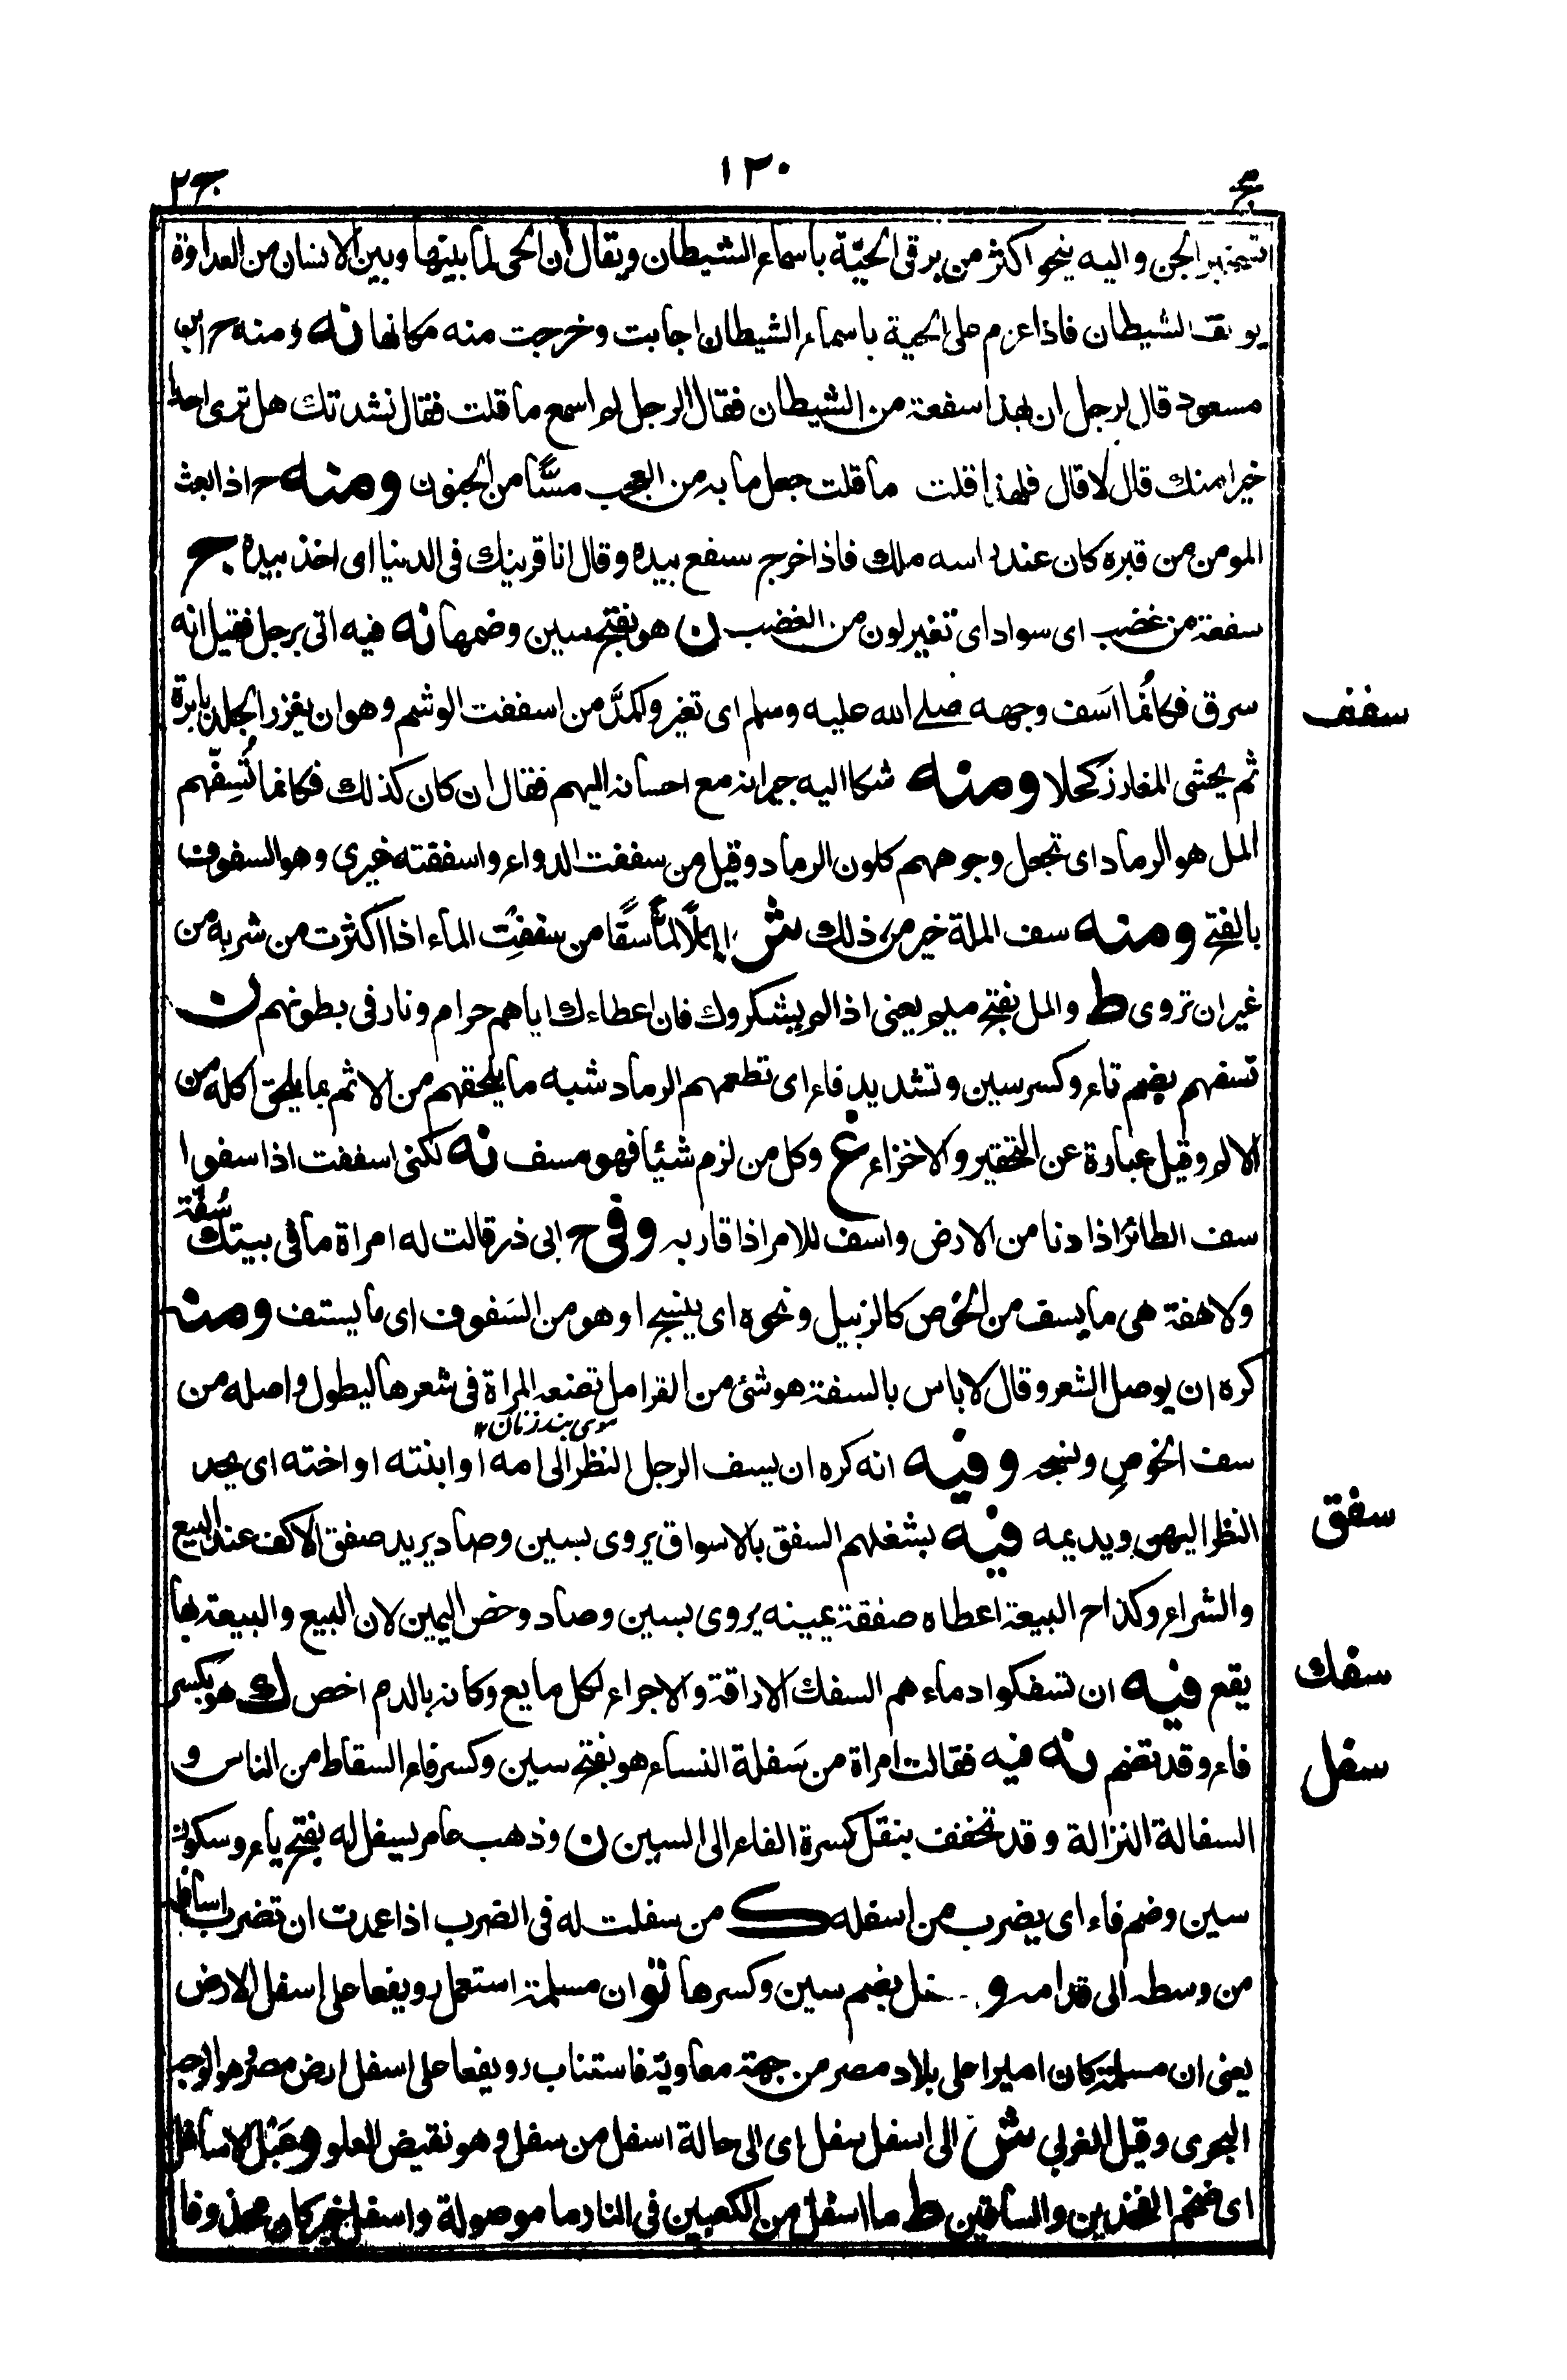 ج ١٣٠ ج٢
الجن واليه ينحو اكثر من يرقى الحيّة باسماء الشيطان ويقال ان الحى لما بينها وبين الانسان من العداوة
الشيطان فاذا عزم على الحية باسماء الشيطان اجابت وخرجت منه مكانها نه ومنه ح ابن
مسعود قال لرجل ان بهذا سفعة من الشيطان فقال الرجل لم اسمع ما قلت فقال نشدتك هل ترى احدا
خيرا منك قال لا قال فلهذا قلت ما قلت جعل ما به من العجب مسًّا من الجنون ومنه ح اذا بعث
المومن من قبره كان عند راسه ملك فاذا خرج سفع بيده وقال انا قرينك فى الدنيا اى اخذ بيده ج
سفعة من غضب اى سواد اى تغير لون من الغضب ن هو بفتح سين وضمها نه فيه اتى برجل فقيل انه
سفف
سرق فكانما اسف وجهه صلے الله عليه وسلم اى تغير واكمدّ من اسففت الوشم وهو ان يغرز الجلد بابرة
ثم يحشى المغارز كحلا ومنه شكا اليه جيرانه مع احسانه اليهم فقال ان كان كذلك فكانما تُسِفّهم
المل هو الرماد اى تجعل وجوههم كلون الرماد وقيل من سففت الدواء واسففته غيرى وهو السفوف
بالفتح ومنه سف الملة خير من ذلك ش سفًّا من سفِفت الماء اذا اكثرت من شربه من
غير ان تروى ط والمل بفتح ميم يعنى اذا لم يشكروك فان اعطاءك اياهم حرام ونار فى بطونهم ن
تسفهم بضم تاء وكسر سين وتشديد فاء اى تطعمهم الرماد شبه ما يلحقهم من الاثم بما يلحق اكله من
الالم وقيل عبارة عن التحقير والاخزاء غ وكل من لزم شيئا فهو مسف نه لكنى اسففت اذا سفوا
سف الطائر اذا دنا من الارض واسف للامر اذا قاربه وفى ح ابى ذر قالت له امراة ما فى بيتك سُفّة
ولا هفة هى ما يسف من الخوص كالزنبيل ونحوه اى ينسج او هو من السَفوف اى ما يستف ومنه
كره ان يوصل الشعر وقال لا باس بالسفة هو شئ من القرامل تضعه المراة فى شعرها ليطول واصله من
موى بند زنان ١٢
سف الخوص ونسجه وفيه انه كره ان يسف الرجل النظر الى امه او ابنته او اخته اى يحد
سفق
النظر اليهن ويديمه فيه يشغلهم السفق بالاسواق يروى بسين وصاد يريد صفق الاكف عند البيع
والشراء وكذا ح البيعة اعطاه صفقة يمينه يروى بسين وصاد وخص اليمين لان البيع والبيعة بها
سفك
يقع فيه ان تسفكوا دماءهم السفك الاراقة والاجراء لكل مايع وكانه بالدم اخص ك هو بكسر
سفل
فاء وقد تضم نه فيه فقالت امراة من سَفلة النساء هو بفتح سين وكسر فاء السقاط من الناس و
السفالة النزالة وقد تخفف بنقل كسرة الفاء الى السين ن وذهب عامر يسفل له بفتح ياء وسكون
سين وضم فاء اى يضرب من اسفله ك من سفلت له فى الضرب اذا عمدت ان تضرب اسافله
من وسطه الى قدامه و بضم سين وكسرها تو ان مسلمة استعمل رويفعا على اسفل الارض
يعنى ان مسلمة كان اميرا على بلاد مصر من جهة معاوية فاستناب رويفعا على اسفل ارض مصر وهو الوجه
البحرى وقيل الغربى ش الى اسفل سفل اى الى حالة اسفل من سفل وهو نقيض العلو وعَبْل الاسافل
اى ضخم الفخذين والساقين ط ما اسفل من الكعبين فى النار ما موصولة واسفل خبر كان محذوفا